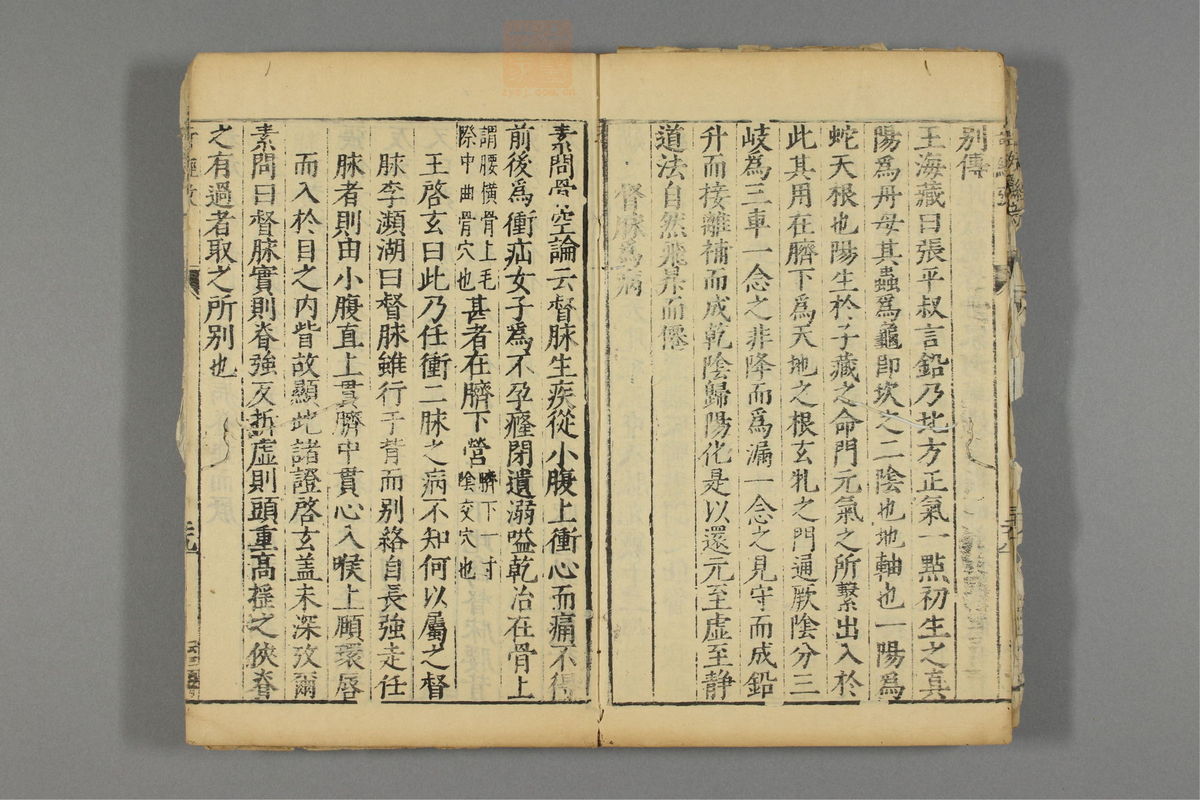 别傳
王海藏曰張平叔言鉛乃北方正氣一㸃初生之真
陽為丹母其蟲為龜卽坎之二陰也地軸也一陽為
蛇天根也陽生於子藏之命門元氣之所繫出入於
此其用在臍下為天地之根玄牝之門通厥陰分三
岐為三車一念之非降而為漏一念之見守而成鉛
升而接離補而成乾陰歸陽化是以還元至虛至静
道法自然飛昇而僊
督脉為病
素問骨空論云督脉生疾從小腹上衝心而痛不得
前後為衝疝女子為不孕癃閉遺溺嗌乾治在骨上
謂腰横骨上毛際中曲骨穴也甚者在臍下營臍下一寸陰交穴也
王啓玄曰此乃任衝二脉之病不知何以屬之督
脉李瀕湖曰督脉雖行于背而别絡自長強走任
脉者則由小腹直上貫臍中貫心入喉上頤環唇
而入於目之内眥故顯此諸證啓玄盖未深攷爾
素問曰督脉實則脊強反折虛則頭重高摇之俠脊
之有過者取之所别也